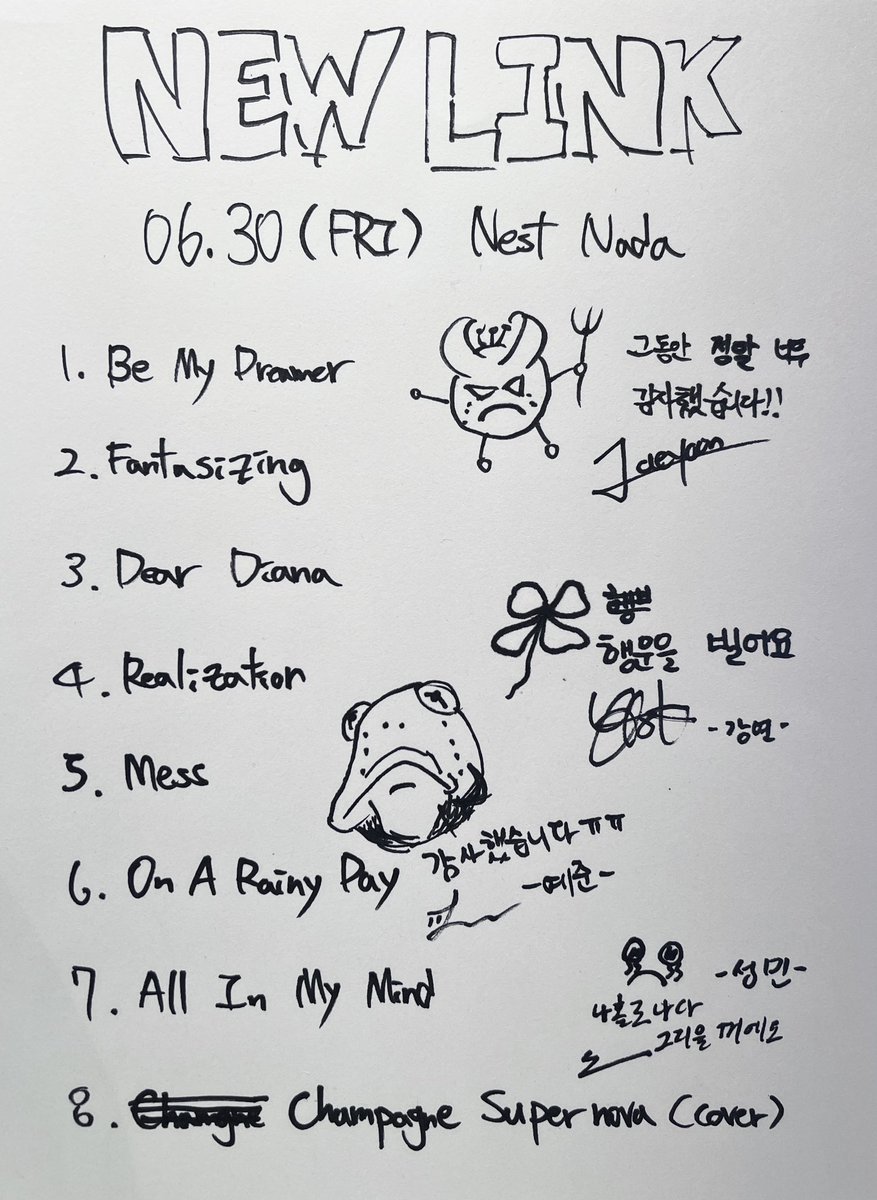 NEW LINK
06.30 (FRI) Nest Nada
1. Be My Dreamer
그동안 정말 너무
감사했습니다!!
Jaeyoon
2. Fantasizing
3. Dear Diana
행운을 빌어요
-강연-
4. Realization
5. Mess
감사했습니다 ㅠㅠ
-예준-
6. On A Rainy Day
7. All In My Mind
-성민-
나홀로 나다
그리울 꺼에요
8. Champagne Supernova (cover)